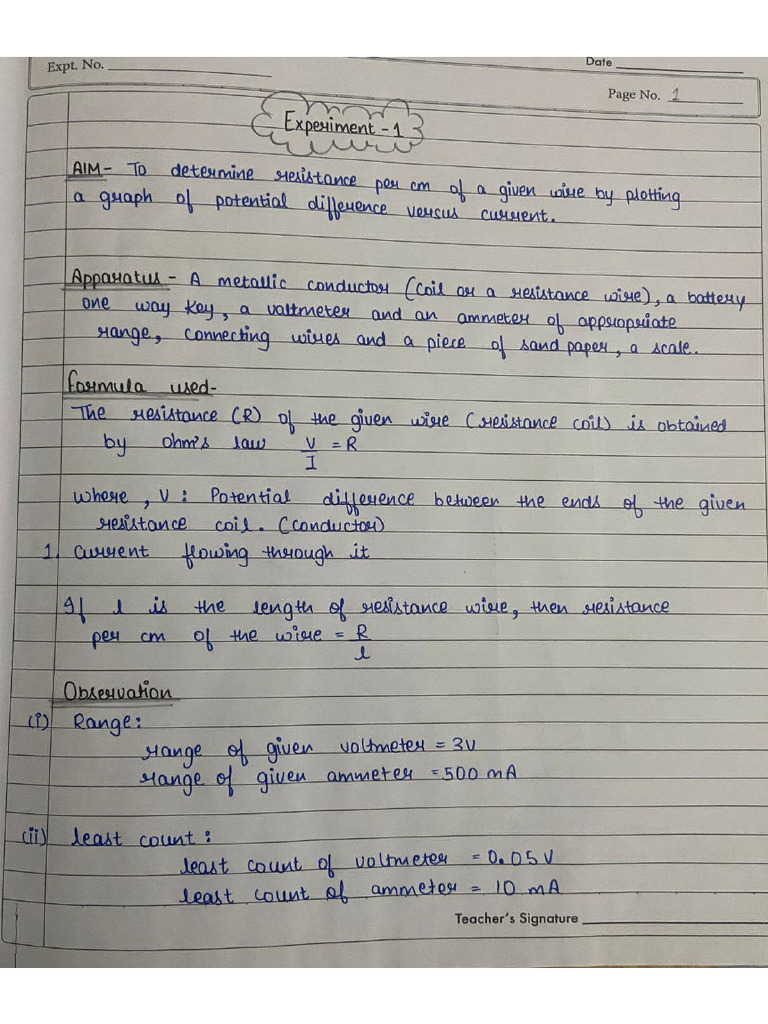 Expt. No.
Date
Page No. 1
Experiment - 1
AIM - To determine resistance per cm of a given wire by plotting
a graph of potential difference versus current.
Apparatus - A metallic conductor (coil or a resistance wire), a battery
one way key, a voltmeter and an ammeter of appropriate
range, connecting wires and a piece of sand paper, a scale.
formula used-
The resistance (R) of the given wire (resistance coil) is obtained
by ohm's law V/I = R
where, V : Potential difference between the ends of the given
resistance coil. (conductor)
1. current flowing through it
If l is the length of resistance wire, then resistance
per cm of the wire = R/l
Observation
(i) Range:
range of given voltmeter = 3V
range of given ammeter = 500 mA
(ii) least count :
least count of voltmeter = 0.05 V
least count of ammeter = 10 mA
Teacher's Signature